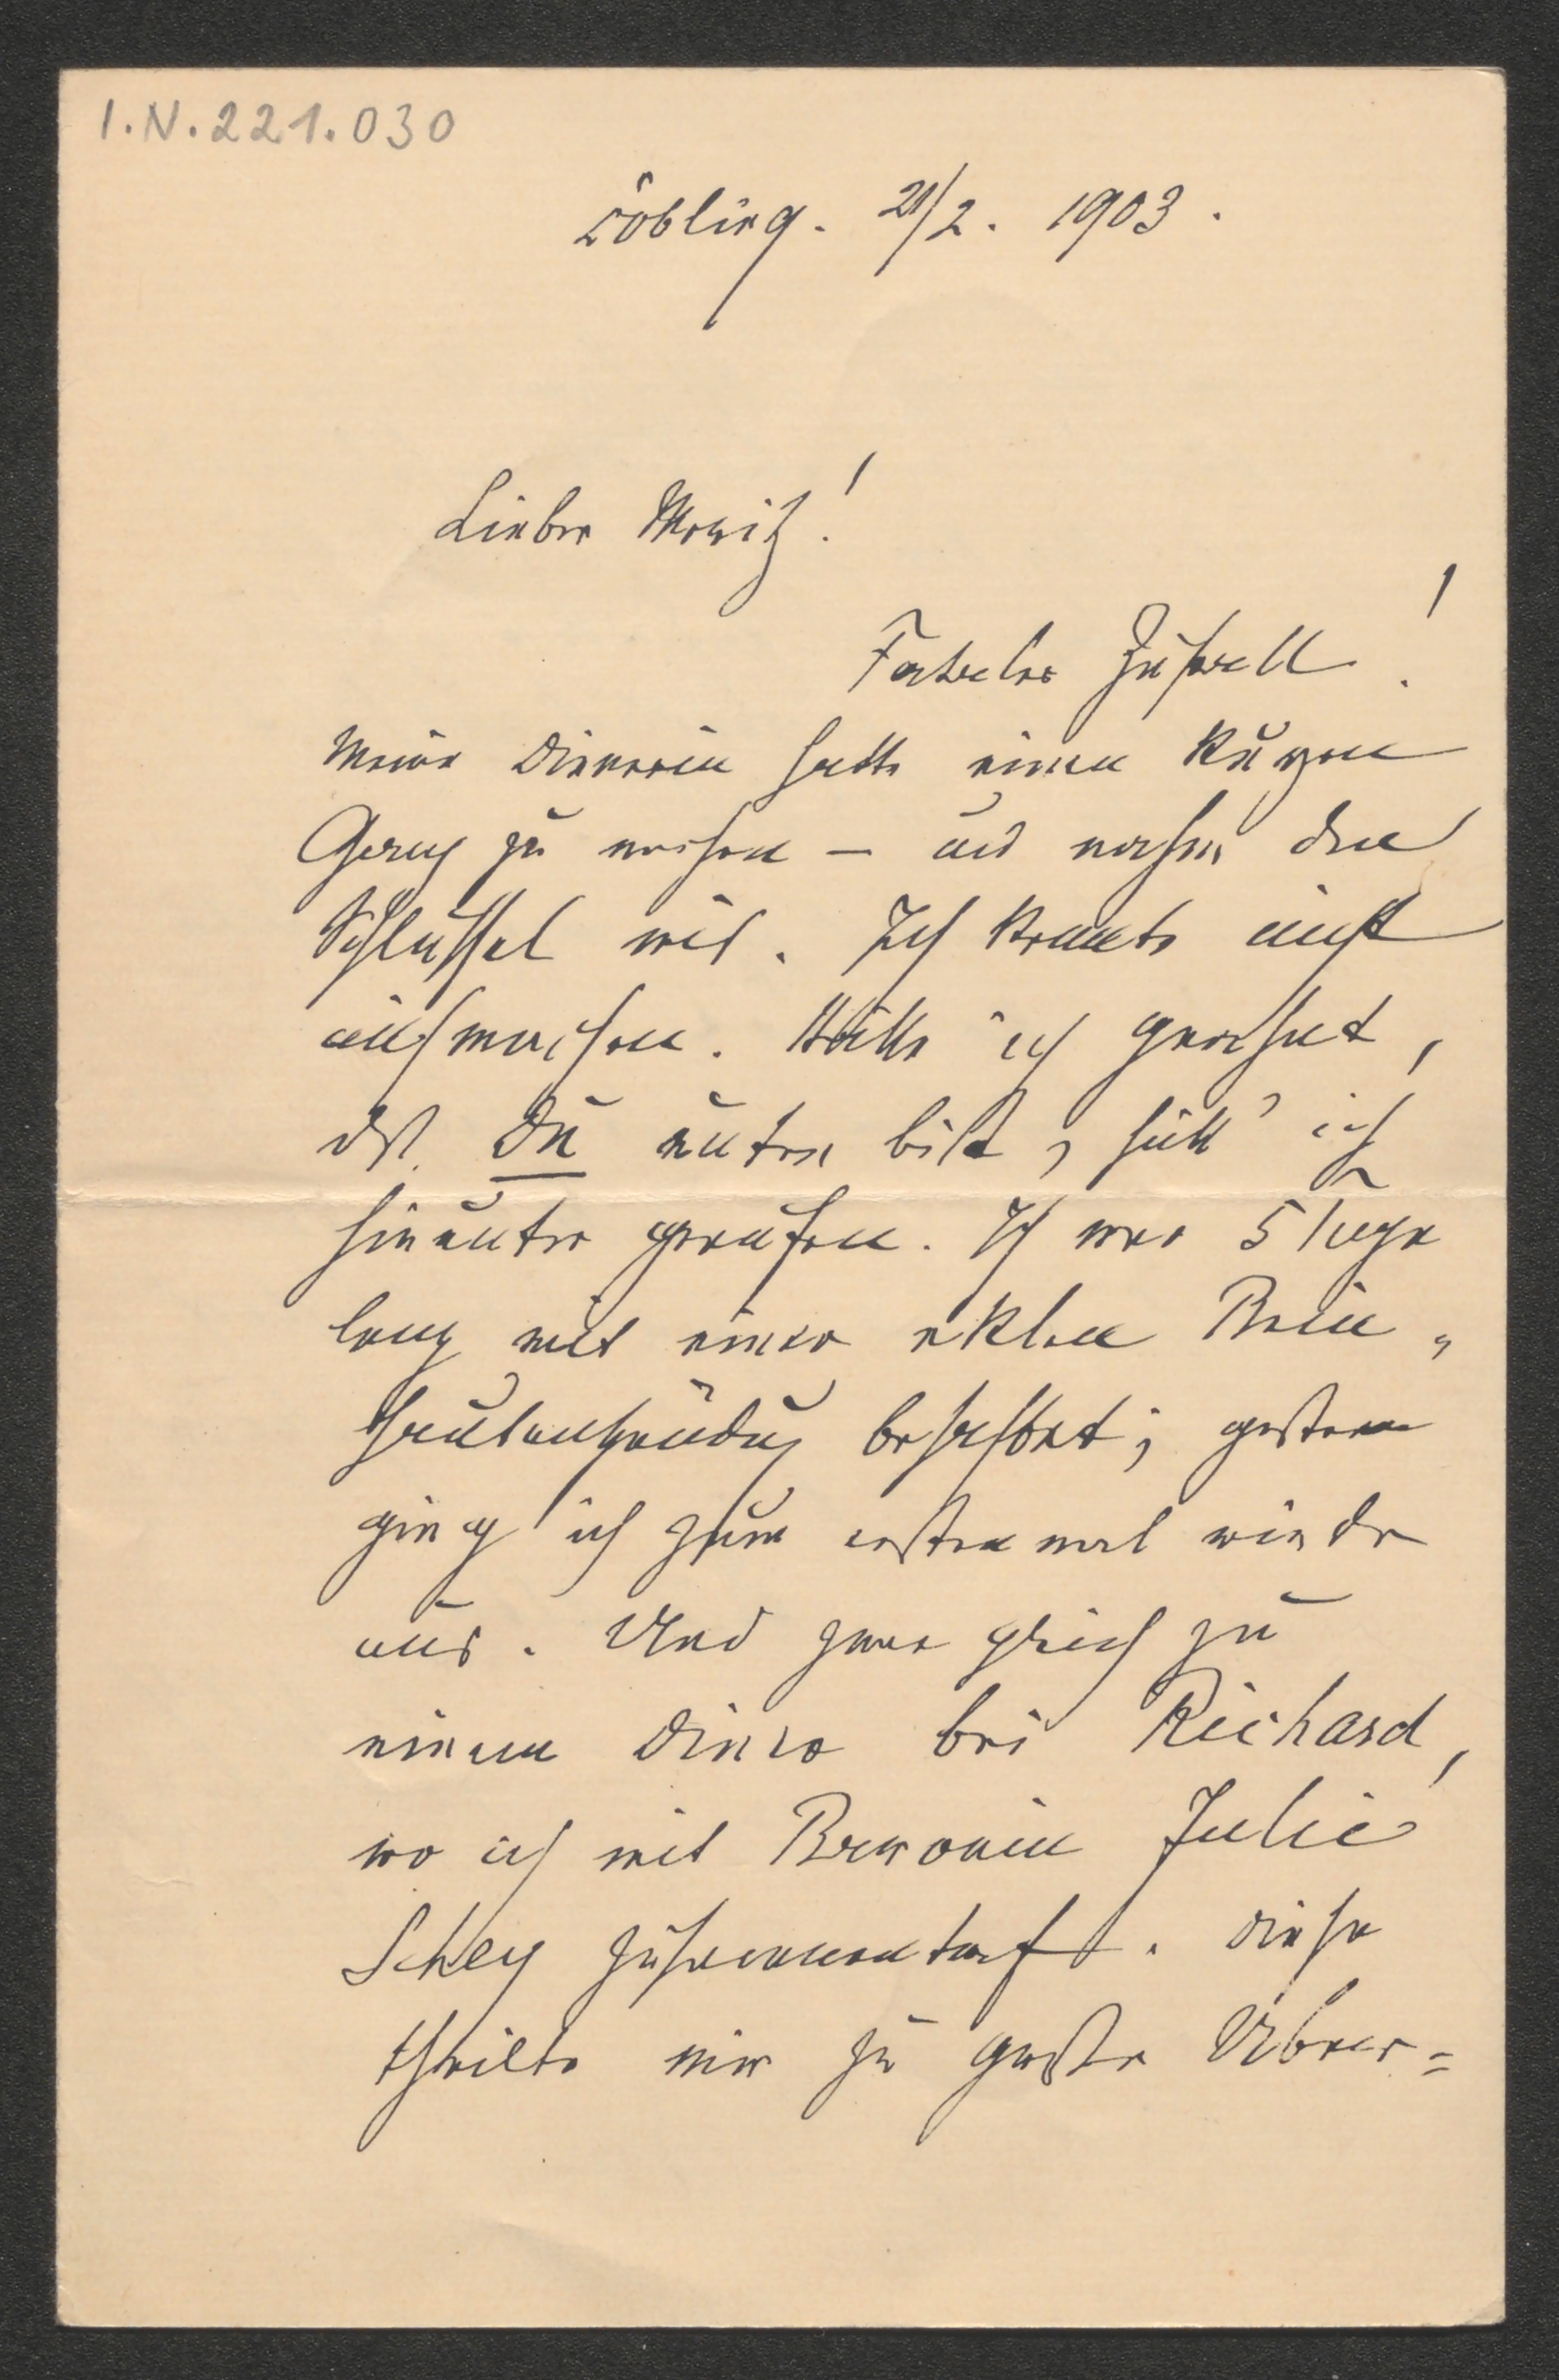 I.N.221.030
Döbling. 21/2. 1903.
Lieber Moritz!
Fataler Zufall!
Meine Dienerin hatte einen kurzen
Gang zu machen – und nahm den
Schlüssel mit. Ich konnte nicht
aufmachen. Hätte ich geahnt,
dß Du unten bist, hätt' ich
hinunter gerufen. Ich war 5 Tage
lang mit einer eklen Bein-
hautentzündung behaftet; gestern
ging ich zum erstenmal wieder
aus. Und zwar gleich zu
einem Diner bei Richard,
wo ich mit Baronin Julie
Schey zusammentraf. Diese
theilte mir zu großer Über=